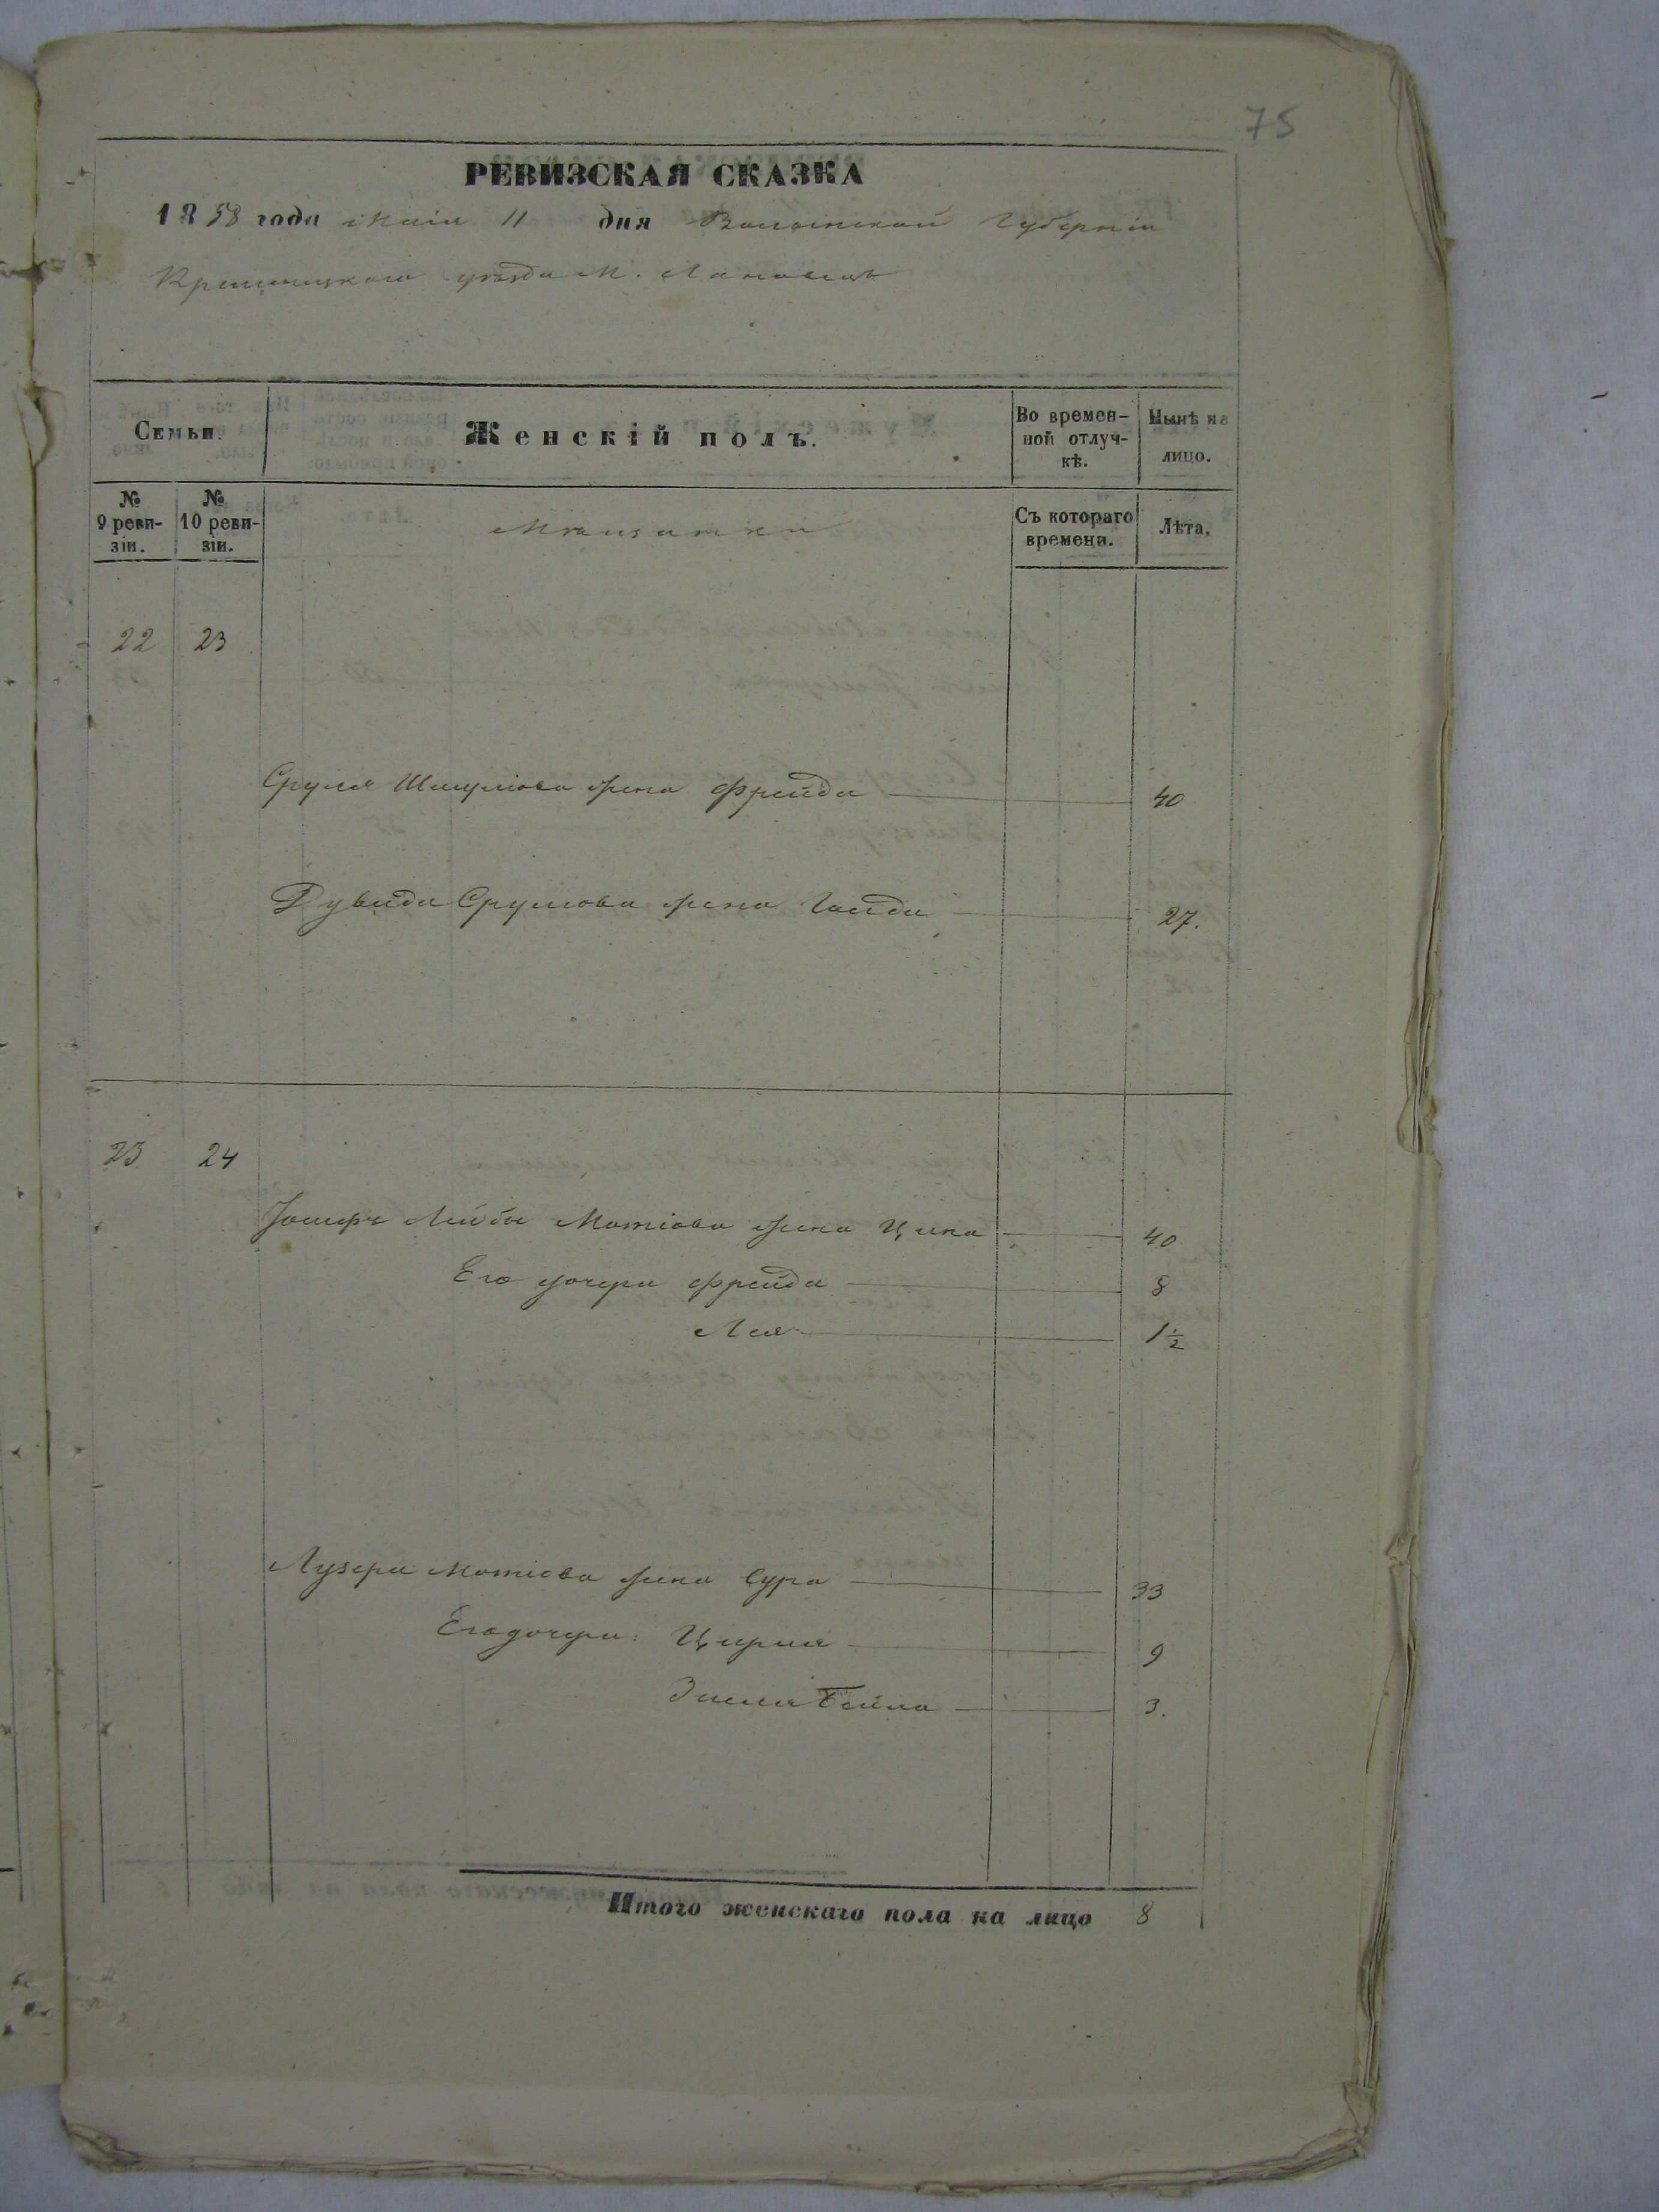 75
РЕВИЗСКАЯ СКАЗКА
1858 года Маія 11 дня Волынской Губерніи
Кременецкого уѣзда М. Лановецъ
Семьи.
Женскій полъ.
Во времен-
ной отлуч-
кѣ.
Нынѣ на
лицо.
№
9 реви-
зіи.
№
10 реви-
зіи.
Мѣщанки
Съ котораго
времени.
Лѣта.
22 23
Сруля Шмулiова жена Фрейда 40
Дувида Срулiова жена 27.
23 24
Іосифъ Лейбы Мотіова жена Ципа 40
Его дочери Фрейда 8
Лея 1½
Лузера Мотіова жена Сура 33
Его дочери: Цирля 9
Зисля Бейла 3.
Итого женскаго пола на лицо 8